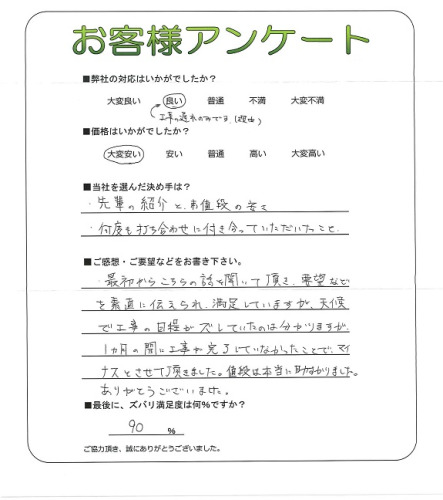 お客様アンケート
■弊社の対応はいかがでしたか?
大変良い 良い 普通 不満 大変不満
工事の遅れのみです(理由)
■価格はいかがでしたか?
大変安い 安い 普通 高い 大変高い
■当社を選んだ決め手は?
・先輩の紹介と、お値段の安さ
・何度も打ち合わせに付き合っていただいたこと。
■ご感想・ご要望などをお書き下さい。
・最初からこちらの話を聞いて頂き、要望など
を素直に伝えられ、満足していますが、天候
で工事の日程がズレていたのは分かりますが、
1ヵ月の間に工事が完了していなかったことで、マイ
ナスとさせて頂きました。値段は本当に助かりました。
ありがとうございました。
■最後に、ズバリ満足度は何%ですか?
90 %
ご協力頂き、誠にありがとうございました。